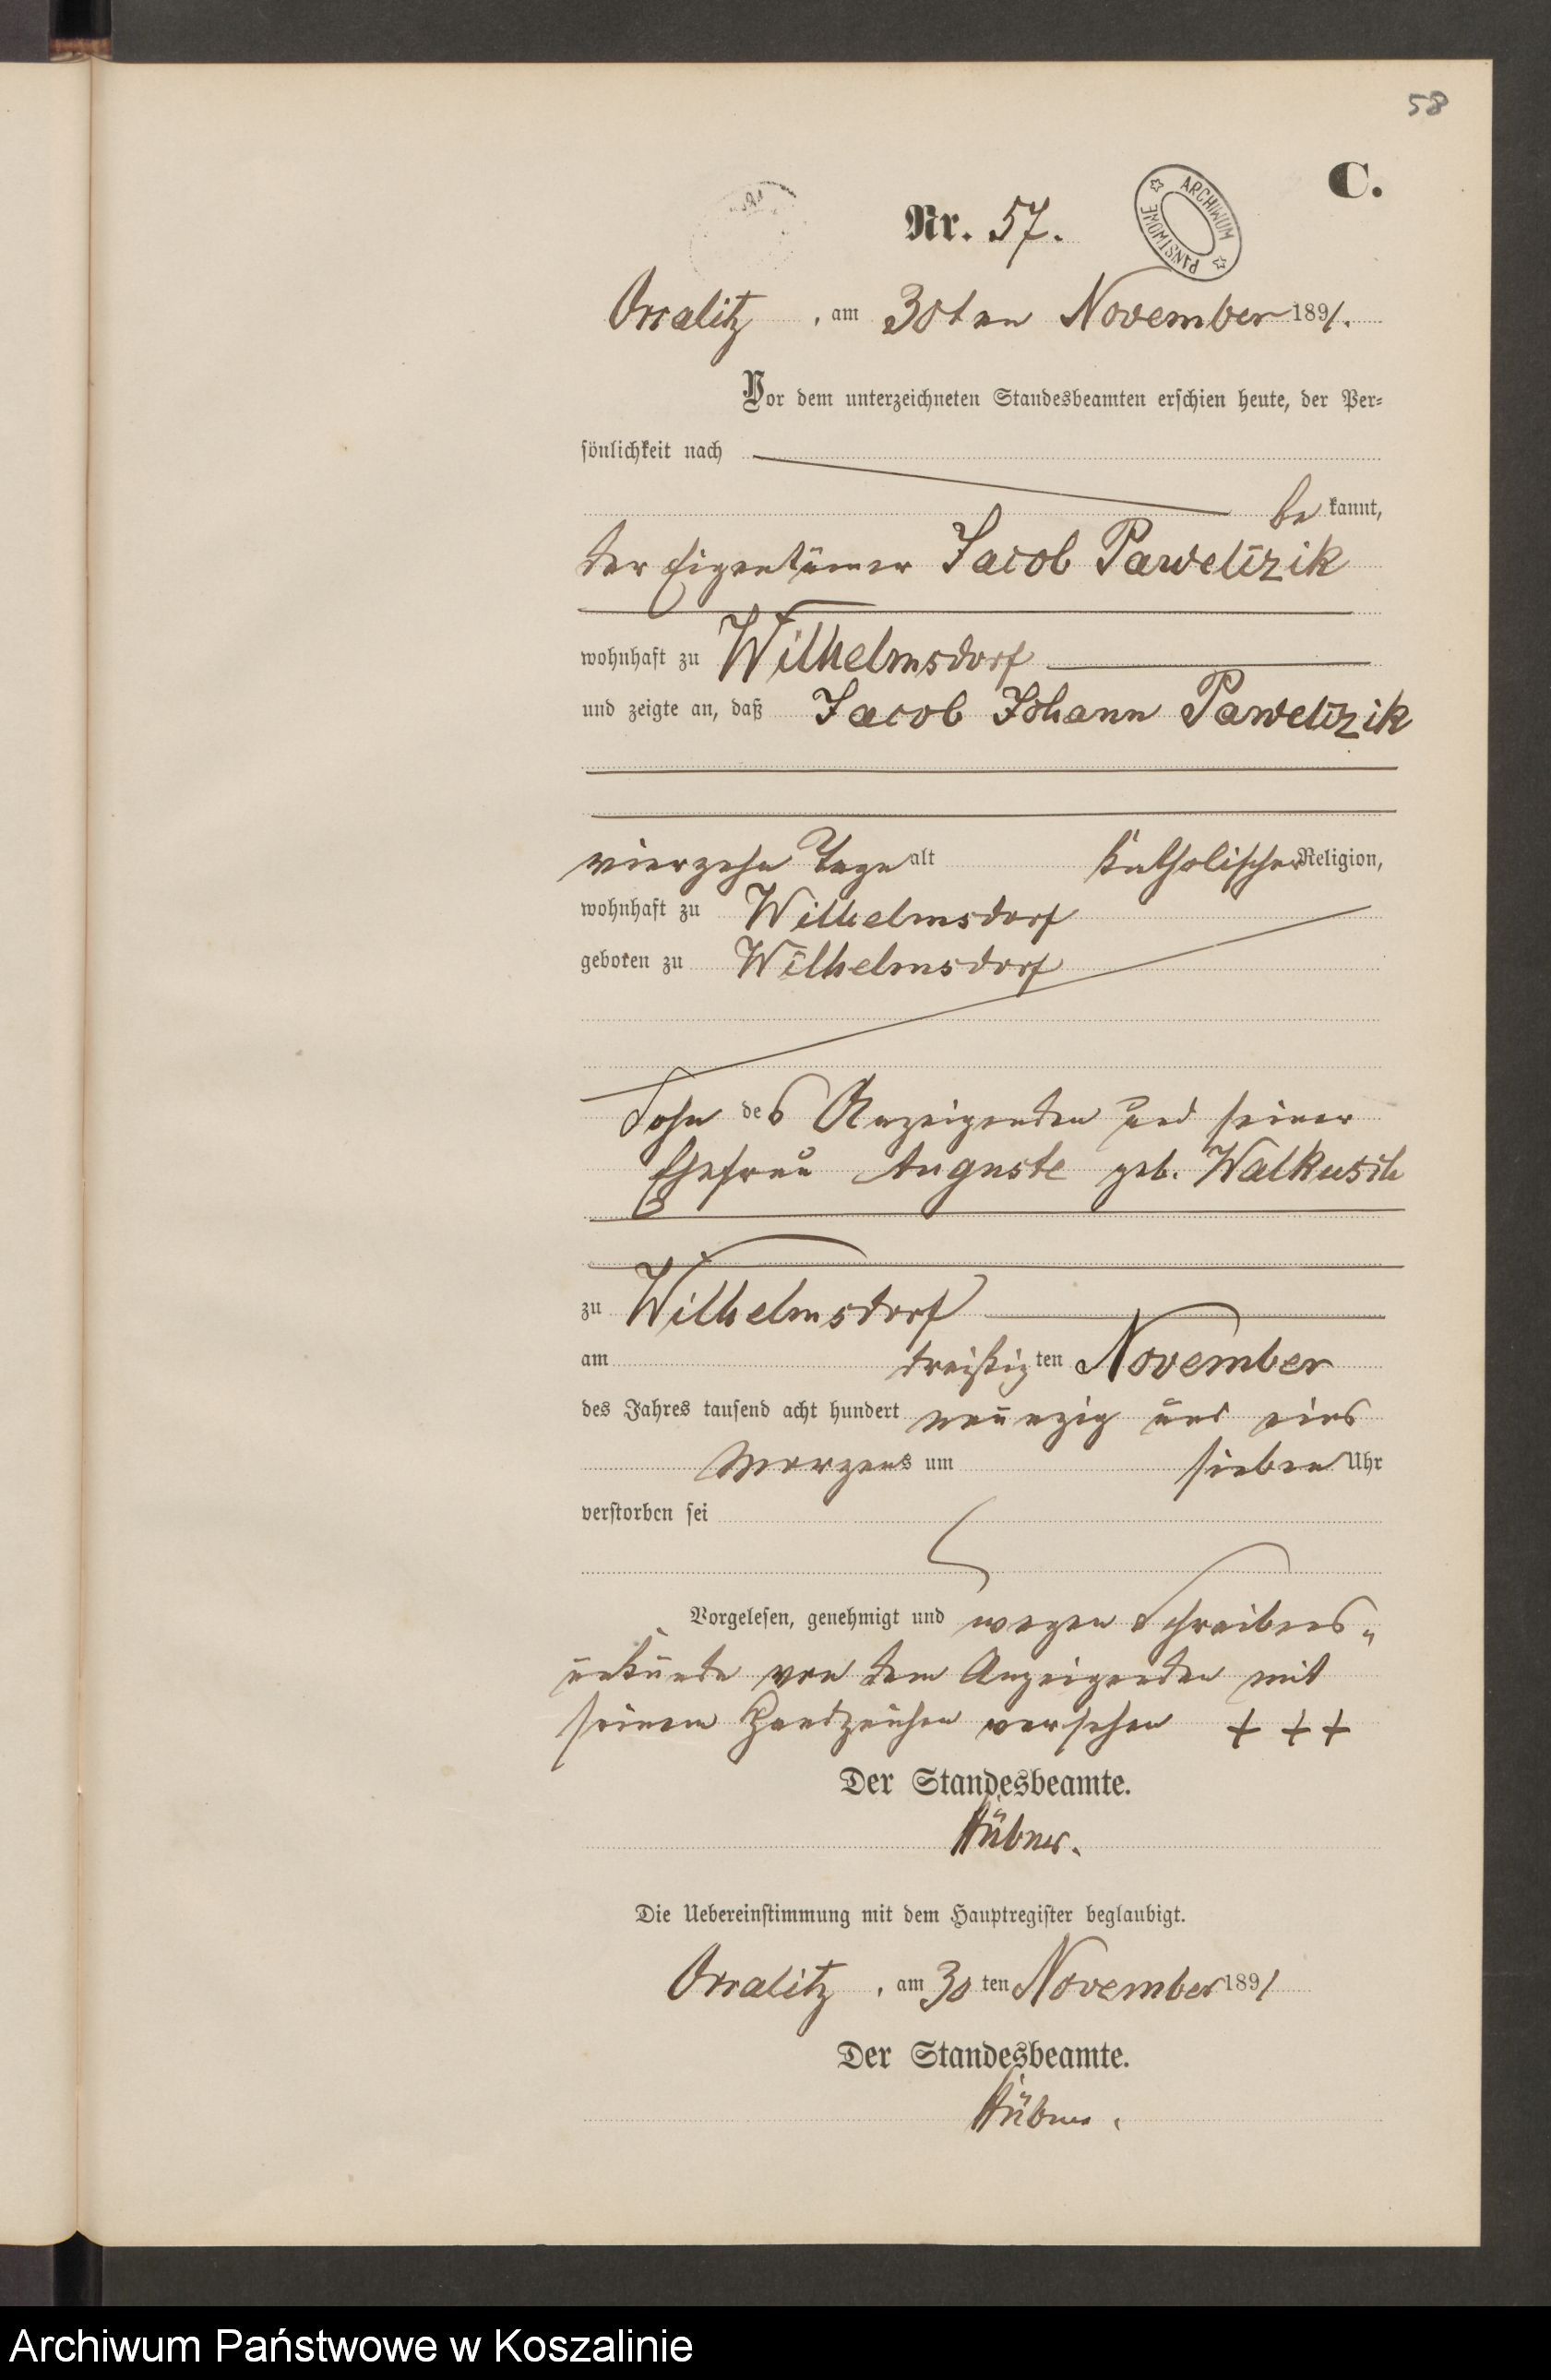 58
C.
Nr. 57.
ARCHIWUM PAŃSTWOWE
Orralitz, am 30ten November 1891.
Vor dem unterzeichneten Standesbeamten erschien heute, der Per-
sönlichkeit nach
bekannt,
der Eigentümer Jacob
wohnhaft zu Wilhelmsdorf
und zeigte an, daß Jacob Johann
vierzehn Tage alt katholischer Religion,
wohnhaft zu Wilhelmsdorf
geboren zu Wilhelmsdorf
Sohn des Anzeigenden und seiner
Ehefrau Auguste geb. Walkusch
zu Wilhelmsdorf
am dreißigten November
des Jahres tausend acht hundert neunzig und eins
Morgens um sieben Uhr
verstorben sei
Vorgelesen, genehmigt und wegen Schreibens-
unkunde von dem Anzeigenden mit
seinem Handzeichen versehen + + +
Der Standesbeamte.
Hübner.
Die Uebereinstimmung mit dem Hauptregister beglaubigt.
Orralitz, am 30ten November 1891
Der Standesbeamte.
Hübner.
Archiwum Państwowe w Koszalinie